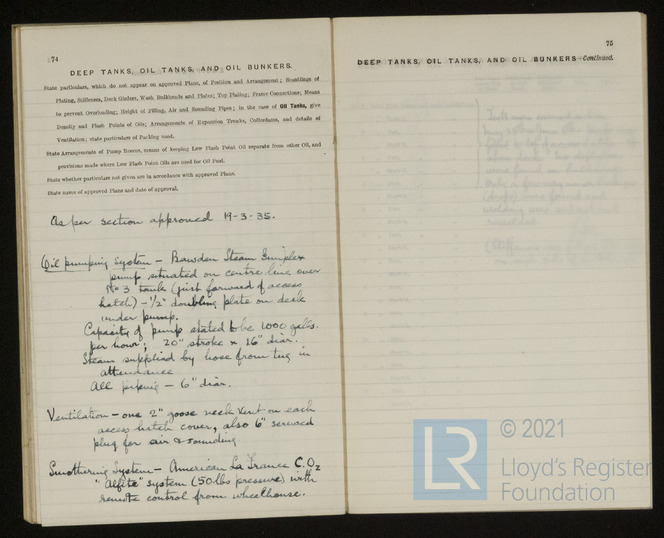 74
DEEP TANKS, OIL TANKS, AND OIL BUNKERS.
State particulars, which do not appear on approved Plans, of Position and Arrangement; Scantlings of
Plating, Stiffeners, Deck Girders, Wash Bulkheads and Plates; Top Plating; Frame Connections; Means
to prevent Overloading; Height of Filling, Air and Sounding Pipes; in the case of Oil Tanks, give
Density and Flash Points of Oils; Arrangements of Expansion Trunks, Cofferdams, and details of
Ventilation; state particulars of Packing used.
State Arrangements of Pump Rooms, means of keeping Low Flash Point Oil separate from other Oil, and
provisions made where Low Flash Point Oils are used for Oil Fuel.
State whether particulars not given are in accordance with approved Plans.
State name of approved Plans and date of approval.
As per section approved 19-3-35.
Oil pumping system - Rawden Steam Simplex
pump situated on centre line over
No 3 tank (just forward of access
hatch) - 1/2" doubling plate on deck
under pump.
Capacity of pump stated to be 1000 galls.
per hour; 20" stroke x 16" diar.
Steam supplied by hose from tug in
attendance
All piping - 6" diar.
Ventilation - one 2" goose neck vent on each
access hatch cover, also 6" screwed
plug for air & sounding
Smothering System - American La France C.O2
"Alfite" system (50 lbs pressure) with
remote control from wheelhouse.
75
DEEP TANKS, OIL TANKS, AND OIL BUNKERS—Continued.
LR
© 2021
Lloyd's Register
Foundation